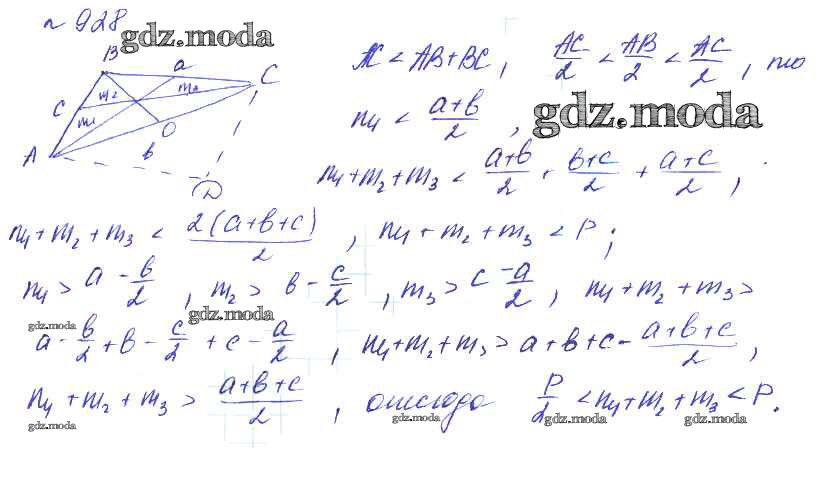 № 928
gdz.moda
B a C
c m₁ m₂ m₃
A b O D
AC < AB + BC, AC/2 < AB/2 < AC/2,
m₁ < (a+b)/2,
gdz.moda
m₁ + m₂ + m₃ < (a+b)/2 + (b+c)/2 + (a+c)/2,
m₁ + m₂ + m₃ < 2(a+b+c)/2, m₁ + m₂ + m₃ < P;
m₁ > a - b/2, m₂ > b - c/2, m₃ > c - a/2, m₁ + m₂ + m₃ >
gdz.moda gdz.moda
a - b/2 + b - c/2 + c - a/2, m₁ + m₂ + m₃ > a + b + c - (a+b+c)/2,
m₁ + m₂ + m₃ > (a+b+c)/2, отсюда P/2 < m₁ + m₂ + m₃ < P.
gdz.moda gdz.moda gdz.moda gdz.moda